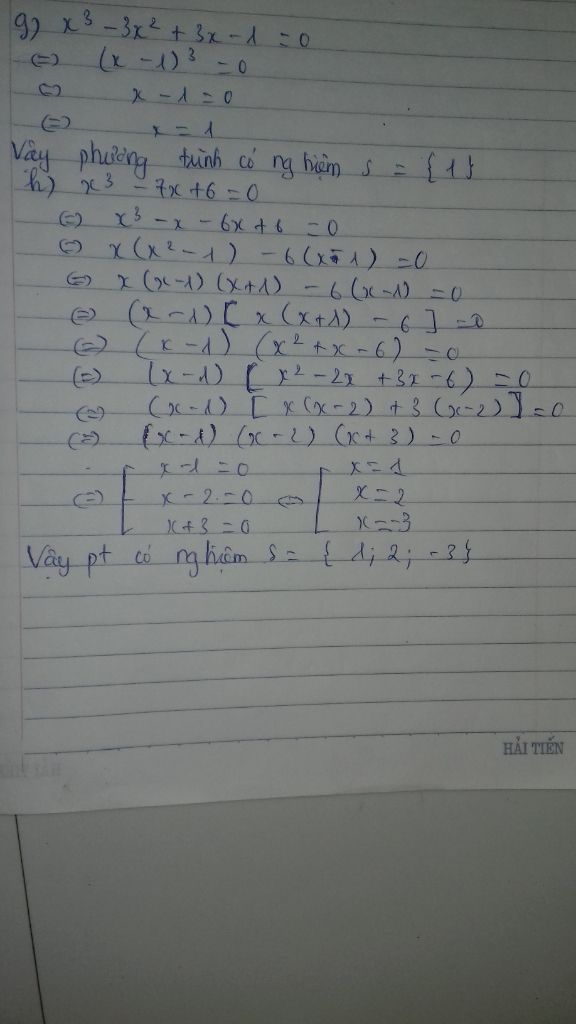 g) x³ - 3x² + 3x - 1 = 0
⇔ (x - 1)³ = 0
⇔ x - 1 = 0
⇔ x = 1
Vậy phương trình có nghiệm S = {1}
h) x³ - 7x + 6 = 0
⇔ x³ - x - 6x + 6 = 0
⇔ x(x² - 1) - 6(x - 1) = 0
⇔ x(x - 1)(x + 1) - 6(x - 1) = 0
⇔ (x - 1)[x(x + 1) - 6] = 0
⇔ (x - 1)(x² + x - 6) = 0
⇔ (x - 1)[x² - 2x + 3x - 6) = 0
⇔ (x - 1)[x(x - 2) + 3(x - 2)] = 0
⇔ (x - 1)(x - 2)(x + 3) = 0
x - 1 = 0 x = 1
⇔ [ x - 2 = 0 ⇔ [ x = 2
x + 3 = 0 x = -3
Vậy pt có nghiệm S = {1; 2; -3}
HẢI TIẾN